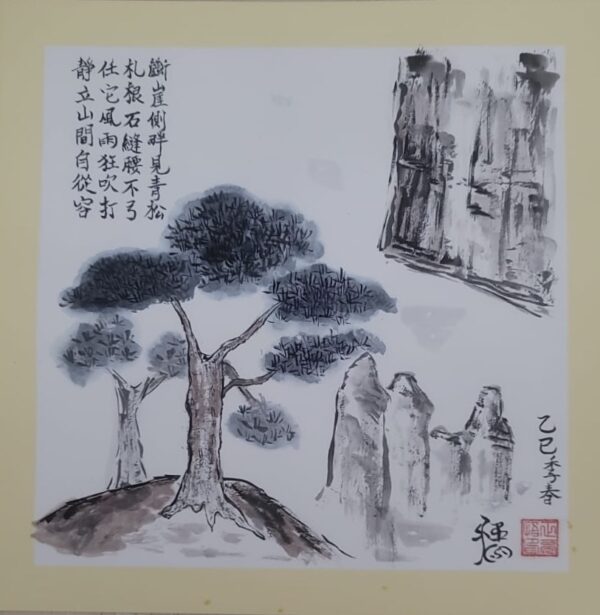 斷崖側畔見青松
札根石縫腰不弓
任它風雨狂吹打
靜立山間自從容
乙巳季春